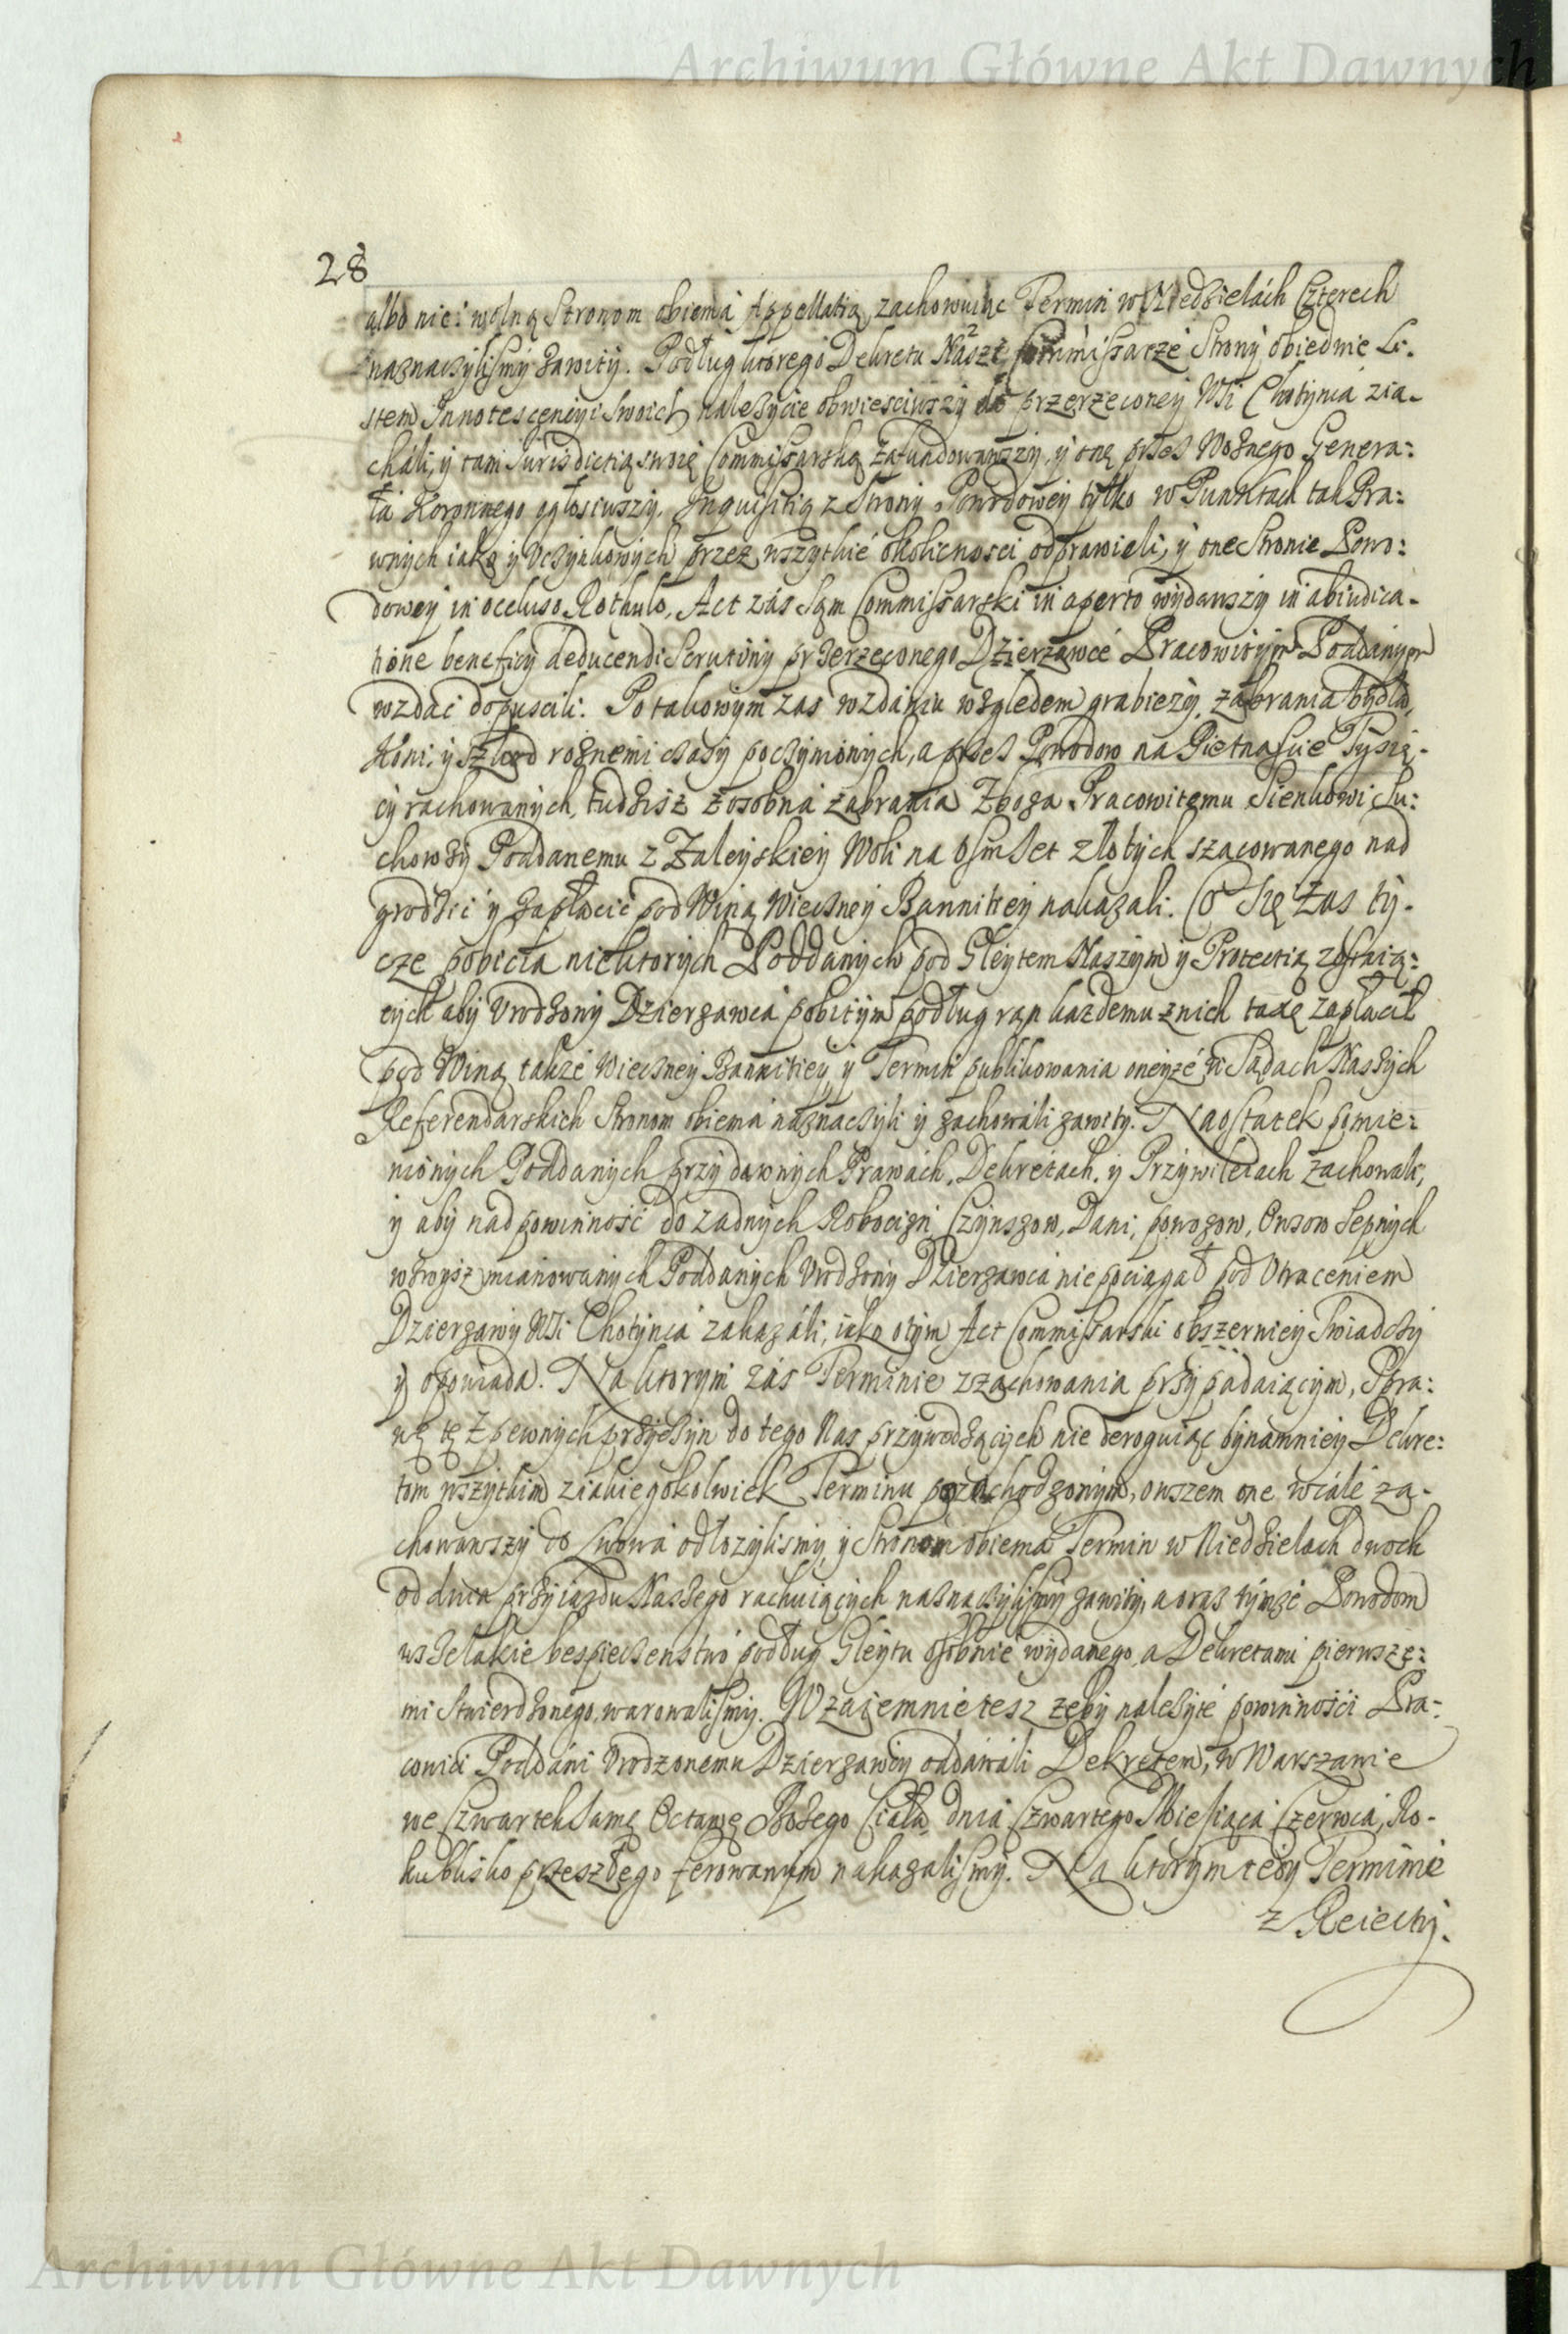 Archiwum Główne Akt Dawnych
28
albo nie: wolną Stronom obiema Appellatią zachowuiąc Termin w Niedzielách Czterech
naznaczylismy zawity. Podług ktorego Dekretu Nászi Commissarze Strony obiedwie Li-
stem Innotescencyi swoich należycie obwiesciwszy do przerzeconey Wsi Chotynia zia-
cháli, y tam Jurisdictią swoię Commissarską zafundowawszy, y onę przes Woznego Genera:
łá Koronnego ogłosiwszy, Inquisitią z Strony Powodowey tylko w Punktach tak Pra:
wnych iako y Uczynkowych przez wszytkie okolicznosci odprawieli, y one Stronie Powo:
dowey in occluso Rothulo, Act zás sąm Commissarski in aperto wydawszy in abiudica-
tione beneficy deducendi Scrutiny przerzeconego Dzierzawcé Pracowitym Poddanym
wzdać dopuscili. Po takowym zas wzdaniu względem grabieży, zabrania bydła,
Koni, y szkod roznemi czasy poczynionych, a przes Powodow na Pietnascie Tysię-
cy rachowanych, tudzisz z osobna zabrania Zboza Pracowitemu Sienkowi Su:
chowzy Poddanemu z Zaleyskiey Woli na osmset złotych szacowanego nad
grodzić y zapłacić pod Winą Wieczney Bannitiey nakazali. Co Się zas ty-
cze pobicia niektorych Poddanych pod Gleytem Naszym y Protectią zostaią:
cych aby Urodzony Dzierzawca pobitym podług ran kazdemu znich taxę zapłacił
pod Winą takze Wieczney Bannitiey, y Termin publikowania oneyzé w Sądach Naszych
Referendarskich Stronom obiema naznaczyli y zachowáli zawity. Naostatek pomie:
nionych Poddanych przy dawnych Prawách, Dekretach, y Przywileiach zachowali,
y aby nad powinność do zadnych Robocizn, Czynszow, Dani, powozow, Owsow Sepnych
wzwysz mianowanych Poddanych Urodzony Dzierzawca nie pociągał pod Utraceniem
Dzierzawy Wsi Chotyńcá zakazáli, iako otym Act Commissarski obszerniey swiadczy
y opowiada. Na ktorym zás Terminie z zachowania przypadaiącym, Spra:
wę tę z pewnych przyczyn do tego Nas przywodzących nie deroguiąc bynamniey Dekre:
tom wszytkim z iakiegokolwiek Terminu pozachodzonym, owszem one wcále za-
chowawszy do Lwowá odłozylismy, y Stronom obiema Termin w Niedzielach dwoch
od dnia przyiazdu Naszego rachuiących naznaczylismy zawity, a oraz tymze Powodom
wszelakie bespieczenstwo podług Gleytu osobnie wydanego, a Dekretami pierwsze:
mi stwierdzonego, warowalismy. Wzaiemnie tesz zeby należyte powinnosci Pra-
cowici Poddáni Urodzonemu Dzierzawcy oddawáli Dekretem, w Warszawie
we Czwartek Samę Octawę Bożego Ciała dnia Czwartego Miesiąca Czerwca, Ro-
ku blisko przeszłego ferowanym nakazalismy. Na ktorym tedy Terminie
z Reiecty.
Archiwum Główne Akt Dawnych